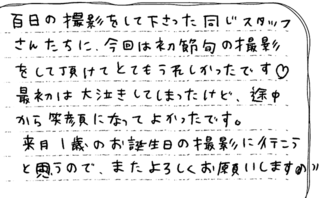 百日の撮影をして下さった同じスタッフ
さんたちに、今回は初節句の撮影
をして頂けてとてもうれしかったです♡
最初は大泣きしてしまったけど、途中
から笑顔になってよかったです。
来月1歳のお誕生日の撮影に行こう
と思うので、またよろしくお願いします